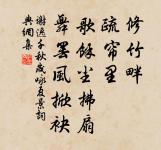 修竹畔
疏帘里
歌餘塵拂扇
舞罢風掀袂
謝逸千秋歲咏夏景詞
典綱集